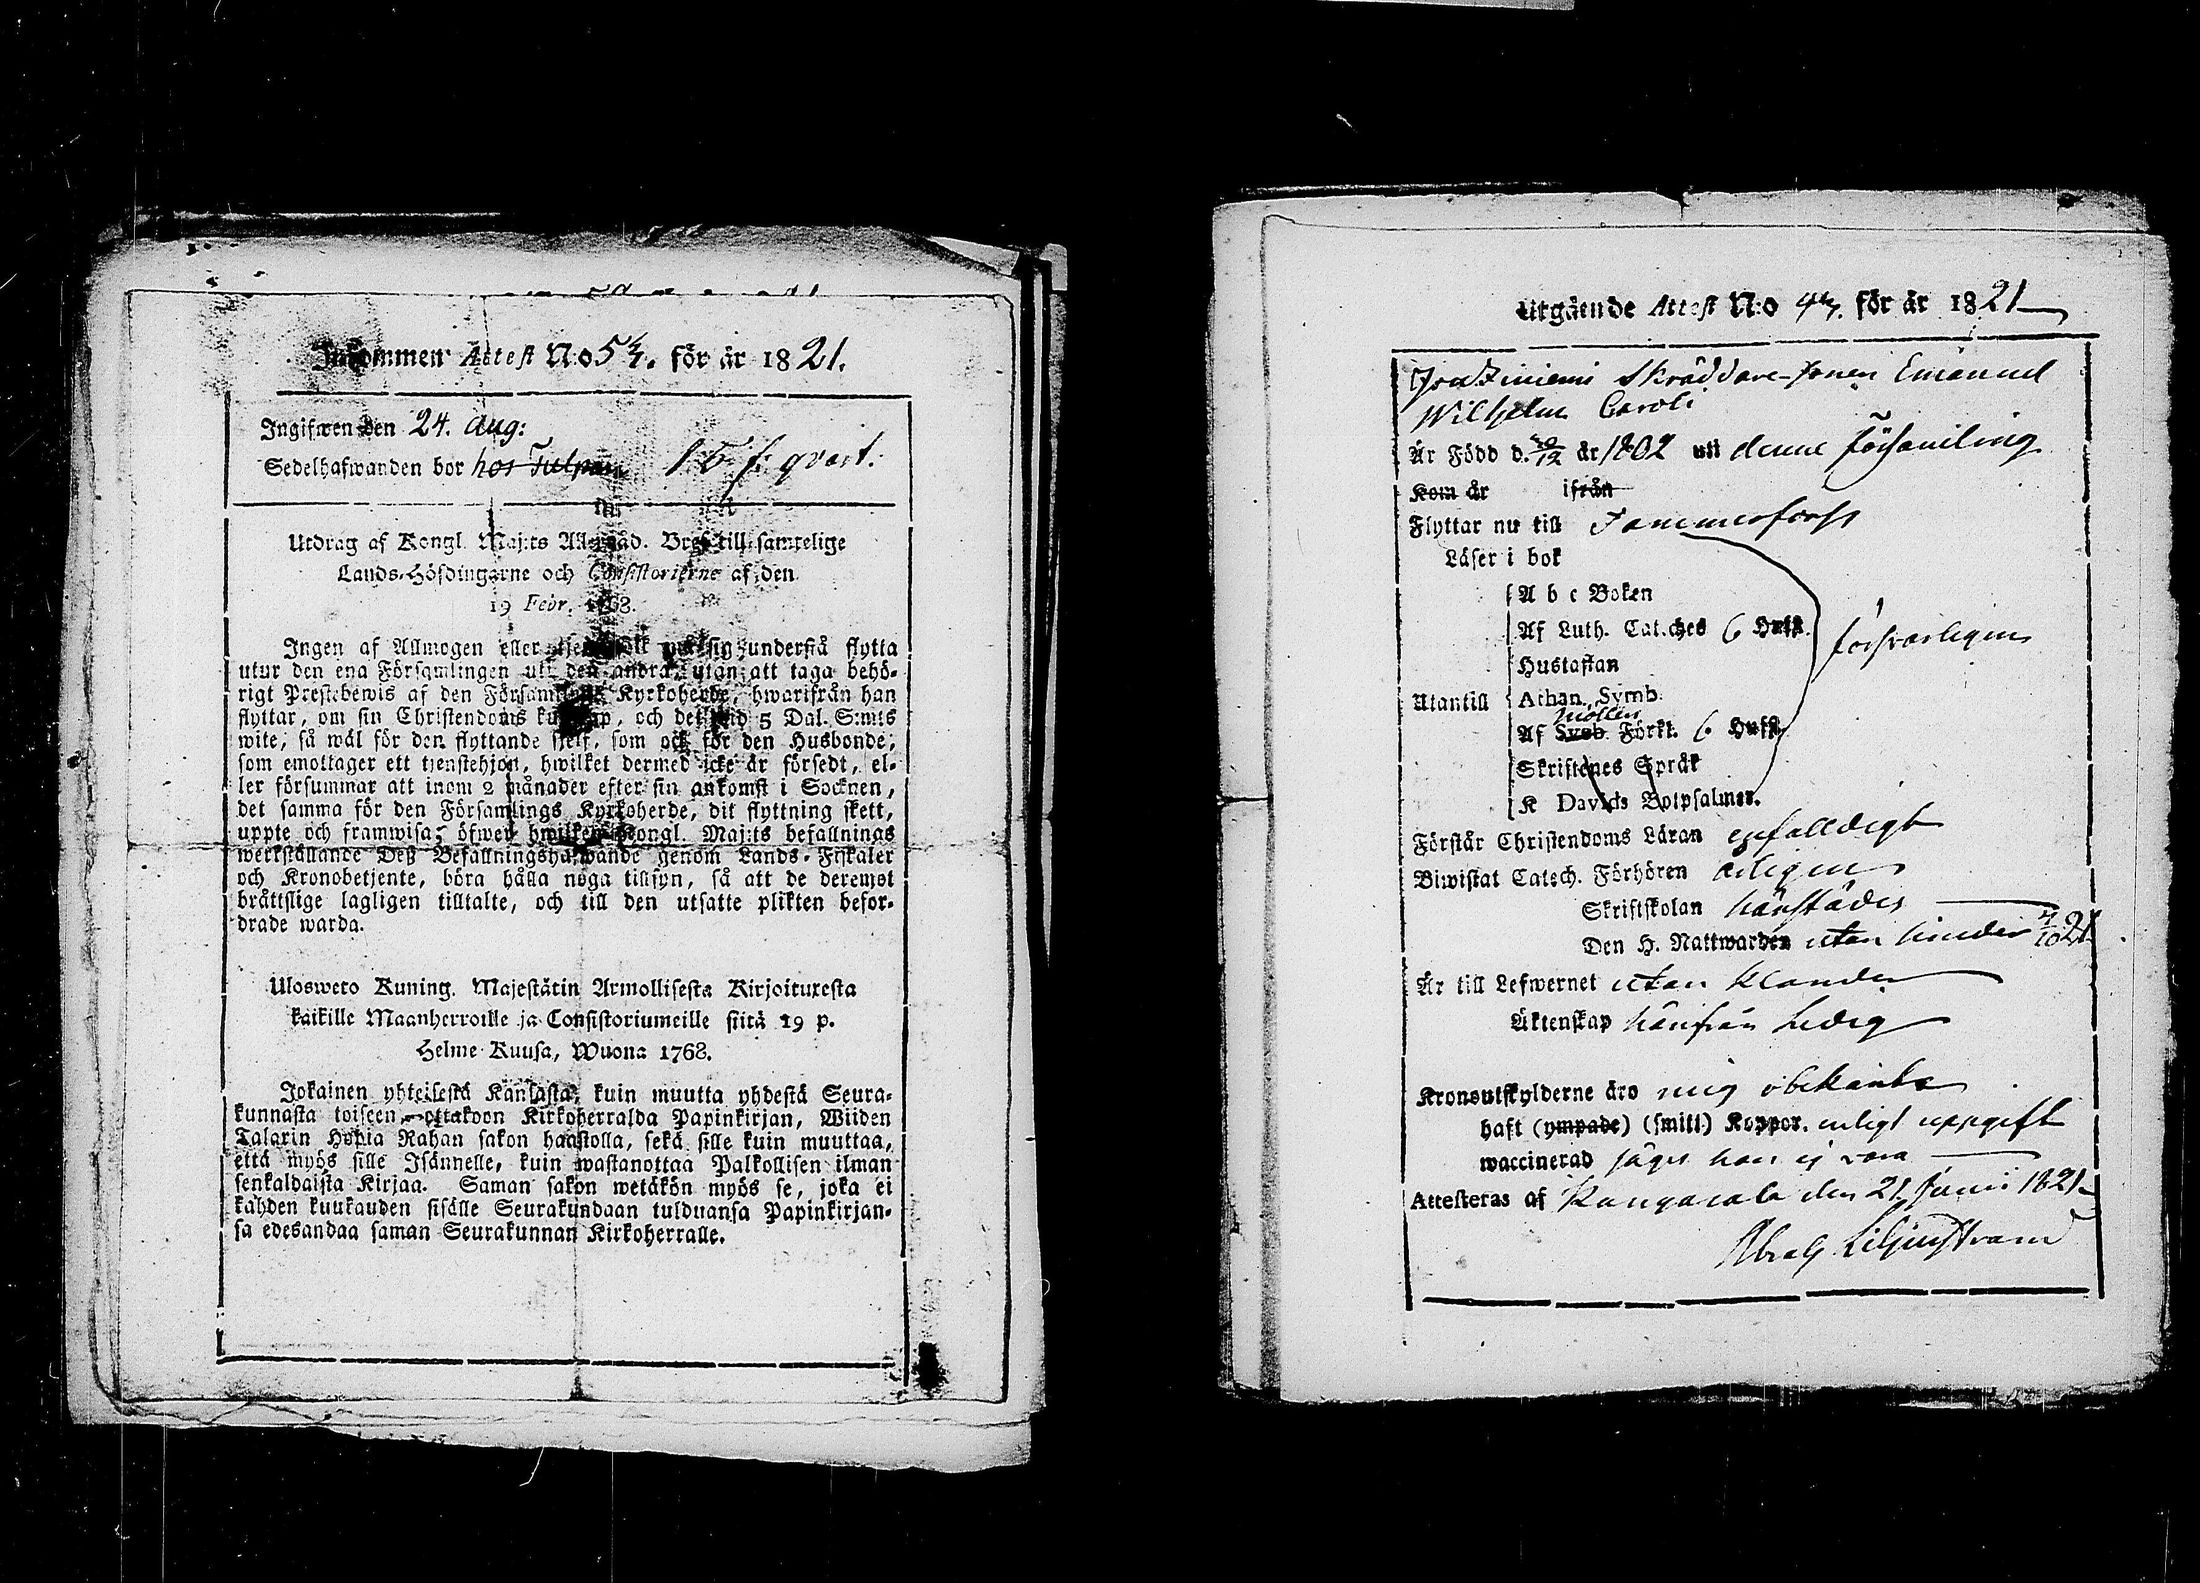 Inkommen Attest N:o 54. för år 1821.
Ingifwen den 24. Aug:
Sedelhafwanden bor hos Tulpan 1 5 f: qvart:
Utdrag af Kongl. Maj:ts Allernåd. Bref till samtelige
Lands-Höfdingarne och Consistorierne af den
19 Febr. 1768.
Ingen af Allmogen eller tjenstefolk må sig understå flytta
utur den ena Församlingen uti den andra, utan att taga behö-
rigt Prestebewis af den Församlings Kyrkoherde, hwarifrån han
flyttar, om sin Christendoms kunskap, och det wid 5 Dal. S:mts
wite, så wäl för den flyttande sjelf, som ock för den Husbonde,
som emottager ett tjenstehjon, hwilket dermed icke är försedt, el-
ler försummar att inom 2 månader efter sin ankomst i Socknen,
det samma för den Församlings Kyrkoherde, dit flyttning skett,
uppte och framwisa; öfwer hwilken Kongl. Maj:ts befallnings
werkställande Deß Befallningshafwande genom Lands-Fiskaler
och Kronobetjente, böra hålla noga tillsyn, så att de deremot
bråttslige lagligen tilltalte, och till den utsatte plikten befor-
drade warda.
Ulosweto Kuning. Majestätin Armollisesta Kirjoituxesta
kaikille Maanherroille ja Consistoriumeille siitä 19 p.
Helme Kuusa, Wuona 1768.
Jokainen yhteisestä Kansasta, kuin muutta yhdestä Seura-
kunnasta toiseen, ottakoon Kirkoherralda Papinkirjan, Wiiden
Talarin Hopia Rahan sakon haastolla, sekä sille kuin muuttaa,
että myös sille Isännelle, kuin wastanottaa Palkollisen ilman
senkaldaista Kirjaa. Saman sakon wetäkön myös se, joka ei
kahden kuukauden sisälle Seurakundaan tulduansa Papinkirjan-
sa edesandaa saman Seurakunnan Kirkoherralle.
Utgående Attest N:o för år 1821
Skräddare-sonen Emanuel
Wilhelm Caroli
Är Född d. 20/12 år 1802 uti denne Församling
Kom år ifrån
Flyttar nu till Tammerforss
Läser i bok
A b c Boken
Af Luth. Catches 6 Hufst.
försvarligen
Hustaflan
Utantill Athan. Symb.
Möllers
Af Sveb. Förkl. 6 Hufst.
Skriftenes Språk
K Davids Botpsalmer.
Förstår Christendoms Läran enfalldigt
Biwistat Catech. Förhören årligen
Skriftskolan härstädes
Den H. Nattwarden utan hinder 21
Är till Lefwernet utan klander
Äktenskap härifrån ledig
Kronoutskylderne äro mig obekanta
haft (ympade) (smitt.) Koppor. enligt uppgift
waccinerad säges han ej vara
Attesteras af Kangasala den 21 Junii 1821
Abrah Liljenstrand